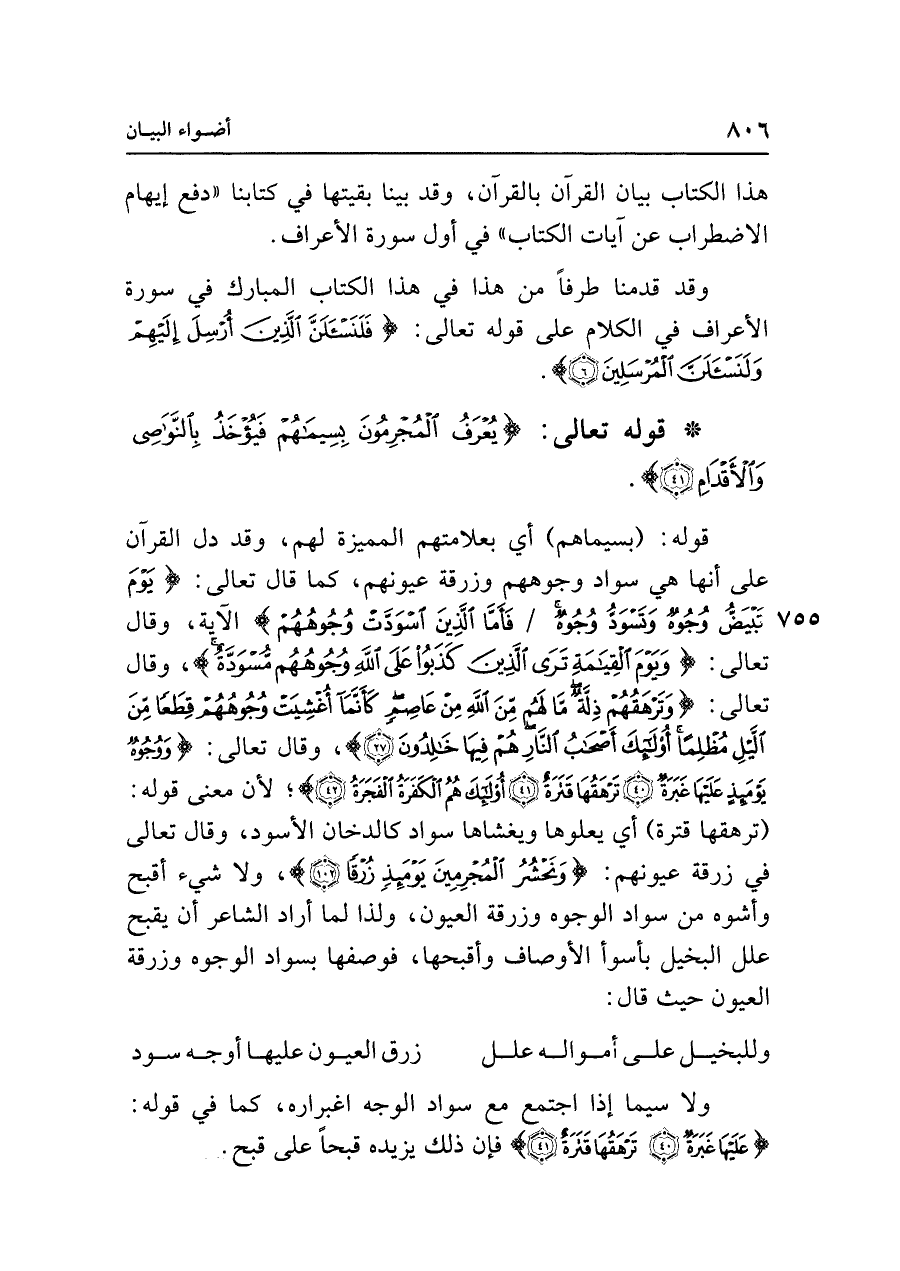 ٨٠٦ أضـواء البيـان
هذا الكتاب بيان القرآن بالقرآن، وقد بينا بقيتها في كتابنا «دفع إيهام
الاضطراب عن آيات الكتاب» في أول سورة الأعراف.
وقد قدمنا طرفاً من هذا في هذا الكتاب المبارك في سورة
الأعراف في الكلام على قوله تعالى: ﴿ فَلَنَسْـَٔلَنَّ ٱلَّذِينَ أُرْسِلَ إِلَيْهِمْ
وَلَنَسْـَٔلَنَّ ٱلْمُرْسَلِينَ ٦﴾.
* قوله تعالى: ﴿ يُعْرَفُ ٱلْمُجْرِمُونَ بِسِيمَٰهُمْ فَيُؤْخَذُ بِٱلنَّوَٰصِى
وَٱلْأَقْدَامِ ٤١﴾.
قوله: (بسيماهم) أي بعلامتهم المميزة لهم، وقد دل القرآن
على أنها هي سواد وجوههم وزرقة عيونهم، كما قال تعالى: ﴿ يَوْمَ
٧٥٥ تَبْيَضُّ وُجُوهٌ وَتَسْوَدُّ وُجُوهٌ ۚ / فَأَمَّا ٱلَّذِينَ ٱسْوَدَّتْ وُجُوهُهُمْ ﴾ الآية، وقال
تعالى: ﴿ وَيَوْمَ ٱلْقِيَٰمَةِ تَرَى ٱلَّذِينَ كَذَبُوا۟ عَلَى ٱللَّهِ وُجُوهُهُم مُّسْوَدَّةٌ ۚ ﴾، وقال
تعالى: ﴿ وَتَرْهَقُهُمْ ذِلَّةٌ ۖ مَّا لَهُم مِّنَ ٱللَّهِ مِنْ عَاصِمٍ ۖ كَأَنَّمَآ أُغْشِيَتْ وُجُوهُهُمْ قِطَعًا مِّنَ
ٱلَّيْلِ مُظْلِمًا ۚ أُو۟لَٰٓئِكَ أَصْحَٰبُ ٱلنَّارِ ۖ هُمْ فِيهَا خَٰلِدُونَ ٢٧﴾، وقال تعالى: ﴿ وَوُجُوهٌ
يَوْمَئِذٍ عَلَيْهَا غَبَرَةٌ ٤٠ تَرْهَقُهَا قَتَرَةٌ ٤١ أُو۟لَٰٓئِكَ هُمُ ٱلْكَفَرَةُ ٱلْفَجَرَةُ ٤٢﴾؛ لأن معنى قوله:
(ترهقها قترة) أي يعلوها ويغشاها سواد كالدخان الأسود، وقال تعالى
في زرقة عيونهم: ﴿ وَنَحْشُرُ ٱلْمُجْرِمِينَ يَوْمَئِذٍ زُرْقًا ١٠٢﴾، ولا شيء أقبح
وأشوه من سواد الوجوه وزرقة العيون، ولذا لما أراد الشاعر أن يقبح
علل البخيل بأسوأ الأوصاف وأقبحها، فوصفها بسواد الوجوه وزرقة
العيون حيث قال:
وللبخيـل علـى أمـوالـه علـل زرق العيـون عليهـا أوجـه سـود
ولا سيما إذا اجتمع مع سواد الوجه اغبراره، كما في قوله:
﴿ عَلَيْهَا غَبَرَةٌ ٤٠ تَرْهَقُهَا قَتَرَةٌ ٤١﴾ فإن ذلك يزيده قبحاً على قبح.